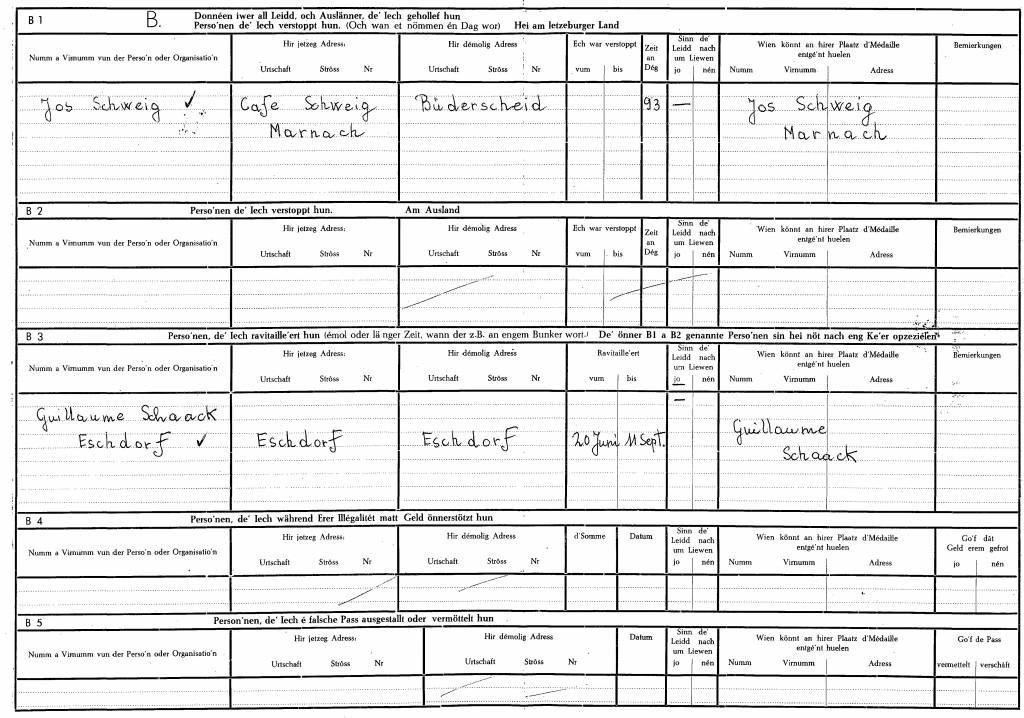 B 1 B. Donnéen iwer all Leidd, och Auslänner, de' Iech gehollef hun
Perso'nen de' Iech verstoppt hun. (Och wan et nömmen én Dag wor) Hei am letzeburger Land
Numm a Virnumm vun der Perso'n oder Organisatio'n
Hir jetzeg Adress:
Urtschaft Ströss Nr
Hir démolig Adress
Urtschaft Ströss Nr
Ech war verstoppt
vum bis
Zeit
an
Dég
Sinn de'
Leidd nach
um Liewen
jo nén
Wien könnt an hirer Plaatz d'Médaille
entgé'nt huelen
Numm Virnumm Adress
Bemierkungen
Jos Schweig ✓ Cafe Schweig Büderscheid 93 — Jos Schweig
Marnach Marnach
B 2 Perso'nen de' Iech verstoppt hun. Am Ausland
Numm a Virnumm vun der Perso'n oder Organisatio'n
Hir jetzeg Adress:
Urtschaft Ströss Nr
Hir démolig Adress
Urtschaft Ströss Nr
Ech war verstoppt
vum bis
Zeit
an
Dég
Sinn de'
Leidd nach
um Liewen
jo nén
Wien könnt an hirer Plaatz d'Médaille
entgé'nt huelen
Numm Virnumm Adress
Bemierkungen
B 3 Perso'nen, de' Iech ravitaille'ert hun (émol oder länger Zeit, wann der z.B. an engem Bunker wort.) De' önner B1 a B2 genannte Perso'nen sin hei nöt nach eng Ke'er opzezielen
Numm a Virnumm vun der Perso'n oder Organisatio'n
Hir jetzeg Adress:
Urtschaft Ströss Nr
Hir démolig Adress
Urtschaft Ströss Nr
Ravitaille'ert
vum bis
Sinn de'
Leidd nach
um Liewen
jo nén
Wien könnt an hirer Plaatz d'Médaille
entgé'nt huelen
Numm Virnumm Adress
Bemierkungen
Guillaume Schaack — Guillaume
Eschdorf ✓ Eschdorf Eschdorf 20 Juni 11 Sept. Schaack
B 4 Perso'nen, de' Iech während Erer Illégalitét matt Geld önnerstötzt hun
Numm a Virnumm vun der Perso'n oder Organisatio'n
Hir jetzeg Adress:
Urtschaft Ströss Nr
Hir démolig Adress
Urtschaft Ströss Nr
d'Somme
Datum
Sinn de'
Leidd nach
um Liewen
jo nén
Wien könnt an hirer Plaatz d'Médaille
entgé'nt huelen
Numm Virnumm Adress
Go'f dât
Geld erem gefrot
jo nén
B 5 Person'nen, de' Iech é falsche Pass ausgestallt oder vermöttelt hun
Numm a Virnumm vun der Perso'n oder Organisatio'n
Hir jetzeg Adress:
Urtschaft Ströss Nr
Hir démolig Adress
Urtschaft Ströss Nr
Datum
Sinn de'
Leidd nach
um Liewen
jo nén
Wien könnt an hirer Plaatz d'Médaille
entgé'nt huelen
Numm Virnumm Adress
Go'f de Pass
vermettelt verschâft